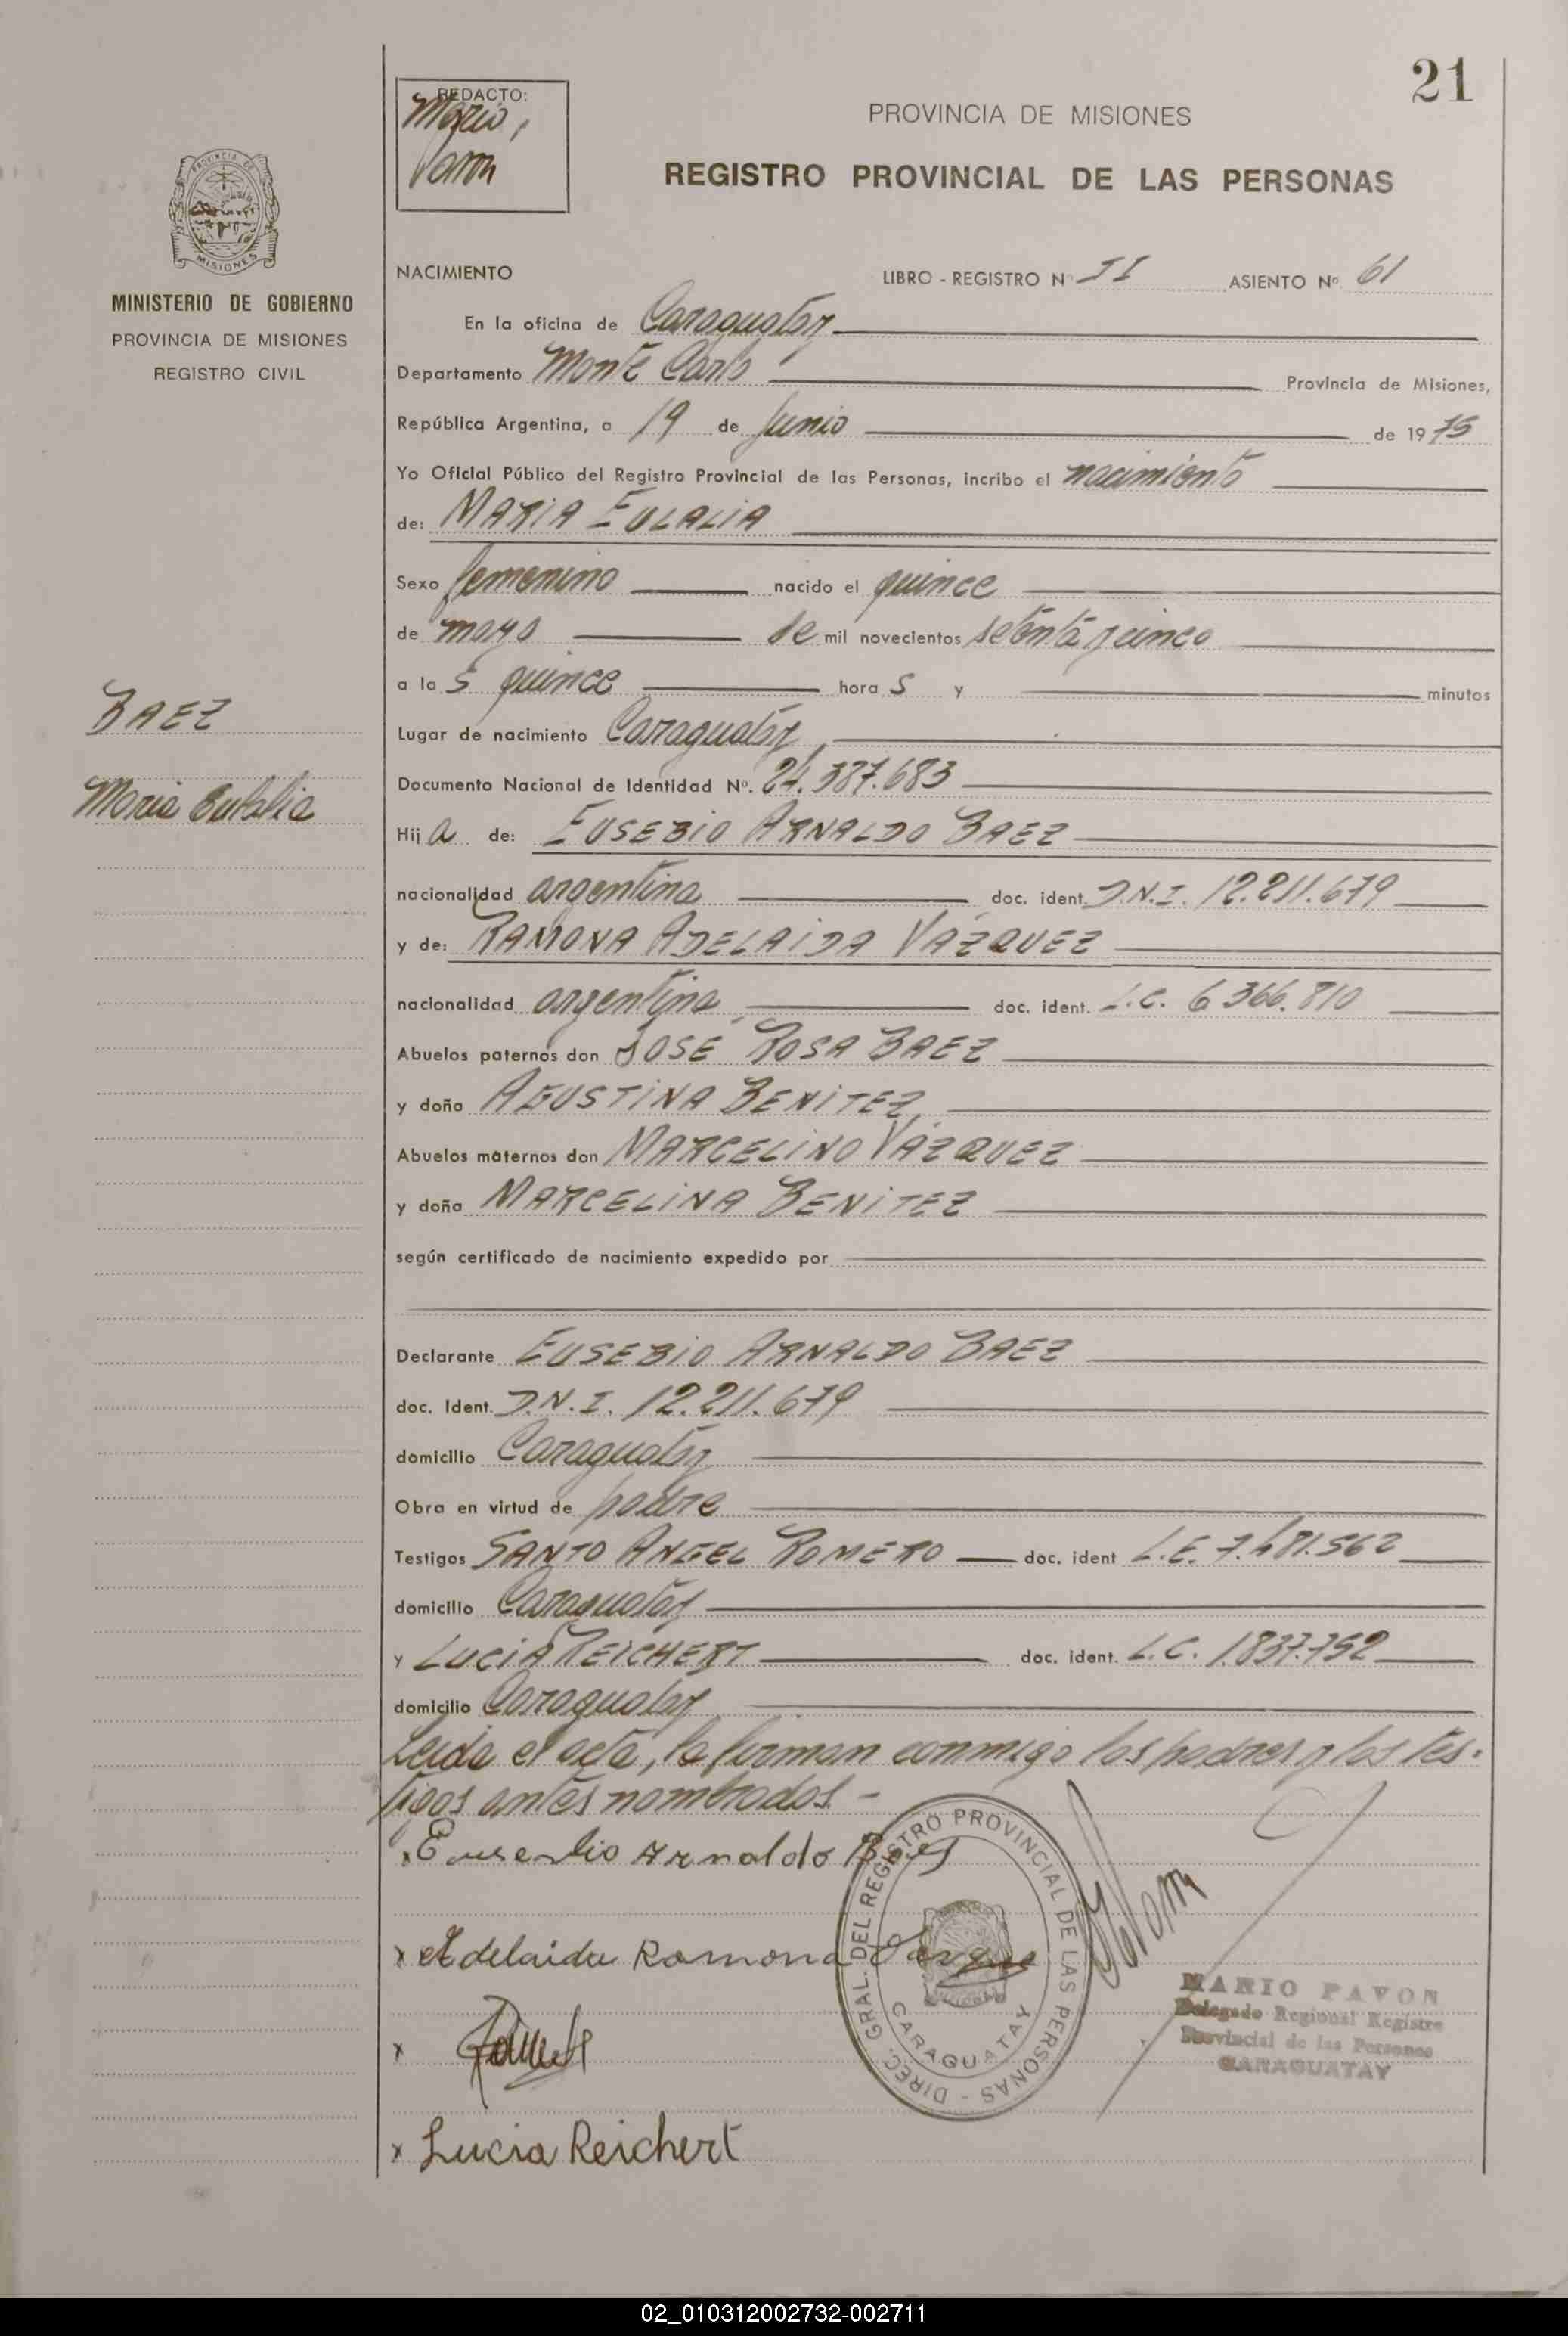 21
REDACTO:
Mario,
Pavon
PROVINCIA DE MISIONES
REGISTRO PROVINCIAL DE LAS PERSONAS
MISIONES
MINISTERIO DE GOBIERNO
PROVINCIA DE MISIONES
REGISTRO CIVIL
BAEZ
Maria Eulalia
NACIMIENTO LIBRO - REGISTRO Nº II ASIENTO Nº 61
En la oficina de Caraguatay
Departamento Monte Carlo Provincia de Misiones,
República Argentina, a 19 de Junio de 1975
Yo Oficial Público del Registro Provincial de las Personas, incribo el nacimiento
de: MARIA EULALIA
Sexo femenino nacido el quince
de mayo de mil novecientos setenta y cinco
a las quince horas y minutos
Lugar de nacimiento Caraguatay
Documento Nacional de Identidad Nº. 24.387.683
Hija de: EUSEBIO ARNALDO BAEZ
nacionalidad argentina doc. ident. D.N.I. 12.211.679
y de: RAMONA ADELAIDA VAZQUEZ
nacionalidad argentina doc. ident. L.C. 6366.810
Abuelos paternos don JOSÉ ROSA BAEZ
y doña AGUSTINA BENITEZ
Abuelos maternos don MARCELINO VAZQUEZ
y doña MARCELINA BENITEZ
según certificado de nacimiento expedido por
Declarante EUSEBIO ARNALDO BAEZ
doc. Ident. D.N.I. 12.211.679
domicilio Caraguatay
Obra en virtud de padre
Testigos SANTO ANGEL ROMERO doc. ident L.E. 7.481.562
domicilio Caraguatay
y LUCIA REICHERT doc. ident. L.C. 1.837.752
domicilio Caraguatay
Leida el acta, la firman conmigo los padres y los tes-
tigos antes nombrados.-
x Eusevio Arnaldo Baes
x Adelaida Ramona
x
x Lucia Reichert
DIREC. GRAL. DEL REGISTRO PROVINCIAL DE LAS PERSONAS - CARAGUATAY
MARIO PAVON
Delegado Regional Registro
Provincial de las Personas
CARAGUATAY
02_010312002732-002711